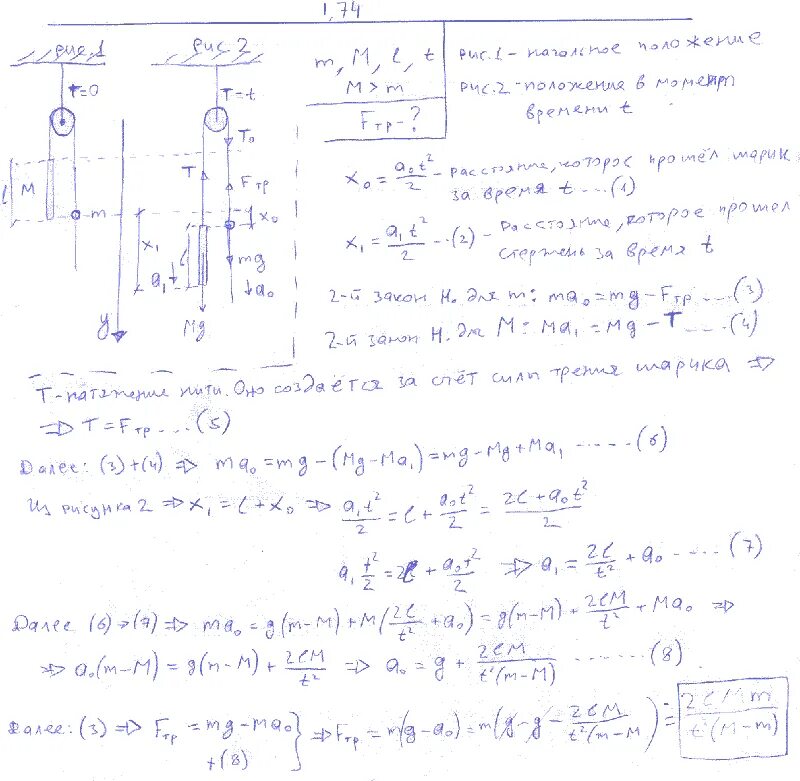 1,74
рис.1
рис 2
T=0
T=t
T₀
T
Fтр
l
M
m
x₀
x₁
l
a₁
mg
a₀
y
Mg
m, M, l, t
M > m
Fтр - ?
рис.1 - начольное положение
рис.2 - положение в момент
времени t
x₀ = a₀t²/2 - расстояние, которое прошёл шарик
за время t ... (1)
x₁ = a₁t²/2 ... (2) - Расстояние, которое прошел
стержень за время t
2-й закон Н. для m: ma₀ = mg - Fтр ..... (3)
2-й закон Н. для M: Ma₁ = Mg - T ..... (4)
T - натяжение нити. Оно создаётся за счёт силы трения шарика ⇒
⇒ T = Fтр .... (5)
Далее: (3)+(4) ⇒ ma₀ = mg - (Mg - Ma₁) = mg - Mg + Ma₁ ...... (6)
Из рисунка 2 ⇒ x₁ = l + x₀ ⇒ a₁t²/2 = l + a₀t²/2 = (2l + a₀t²)/2
a₁ t²/2 = l + a₀t²/2 ⇒ a₁ = 2l/t² + a₀ ...... (7)
Далее (6)→(7) ⇒ ma₀ = g(m-M) + M(2l/t² + a₀) = g(m-M) + 2lM/t² + Ma₀ ⇒
⇒ a₀(m-M) = g(m-M) + 2lM/t² ⇒ a₀ = g + 2lM/t²(m-M) ....... (8)
Далее: (3) ⇒ Fтр = mg - ma₀ + (8) } ⇒ Fтр = m(g-a₀) = m(g - g - 2lM/t²(m-M)) = 2lMm/t²(M-m)